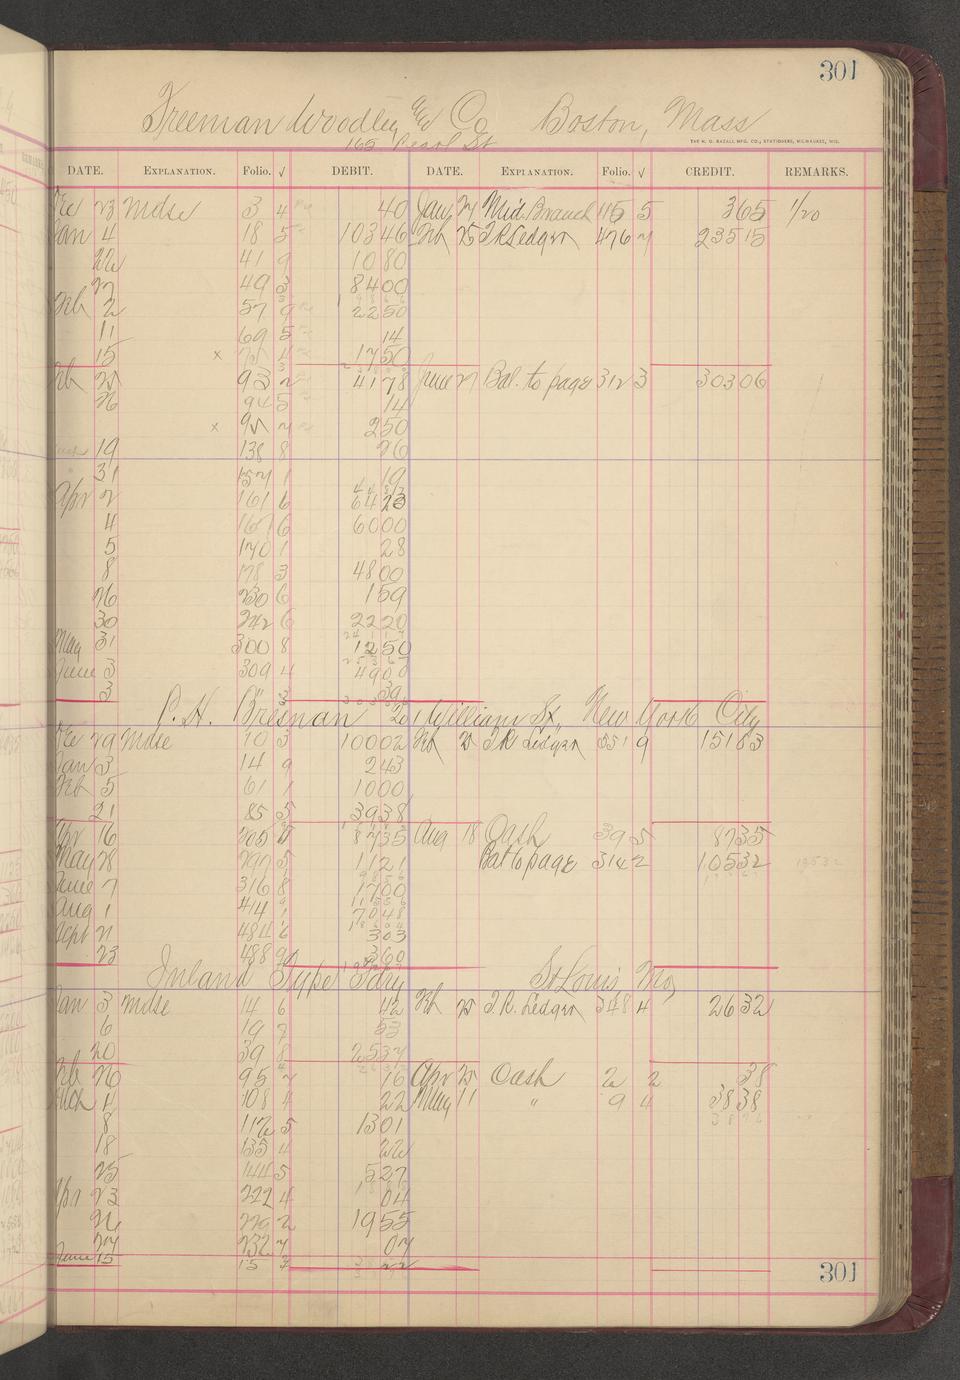 301
Freeman Woodley & Co Boston, Mass
165 Pearl St
THE H. G. RAZALL MFG. CO., STATIONERS, MILWAUKEE, WIS.
DATE. EXPLANATION. Folio. √ DEBIT. DATE. EXPLANATION. Folio. √ CREDIT. REMARKS.
23 Mdse 3 4 40 Jan 27 Mid. Branch 115 5 365 1/20
Jan 4 18 5 10346 Feb 25 T.R. Ledger 476 7 23515
22 41 9 1080
27 49 3 8400
Feb 2 57 9 2250
11 69 5 14
15 x 75 4 1750
Feb 25 93 2 4178 June 27 Bal. to page 312 3 30306
26 94 5 14
x 95 7 250
19 138 8 26
31 157 1 19
Apr 2 161 6 6423
4 167 6 6000
5 170 1 28
8 178 3 4800
26 230 6 159
30 242 6 2220
May 31 300 8 1250
June 3 309 4 4900
3 " 3 39
P. H. Bresnan 201 William St., New York City
29 Mdse 10 3 10002 Feb 25 T.R. Ledger 351 9 15183
Jan 3 14 9 243
Feb 5 61 1 1000
21 85 5 3938
Apr 16 205 5 8735 Aug 18 Cash 39 5 8735
May 28 297 5 1121 Bal to page 314 2 10532
June 7 316 8 1700
Aug 1 414 1 7048
Sept 21 484 6 303
23 488 9 360
Inland Type Fdry St Louis, Mo,
Jan 3 Mdse 14 6 42 Feb 25 T.R. Ledger 348 4 2632
6 19 7 53
20 39 8 2537
Feb 26 95 7 16 Apr 25 Cash 2 2 38
Mch 4 108 4 22 May 11 " 9 4 3838
8 112 5 1301
18 135 4 22
25 144 5 527
Apr 23 222 4 04
26 229 2 1955
27 232 7 07
June 15 15 7 22
301